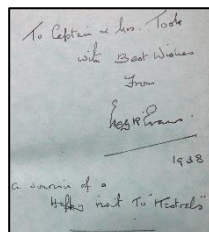 To Captain & Mrs. Took
with Best Wishes
From
Evans
1938
a souvenir of a
Happy visit to "Kestrels"